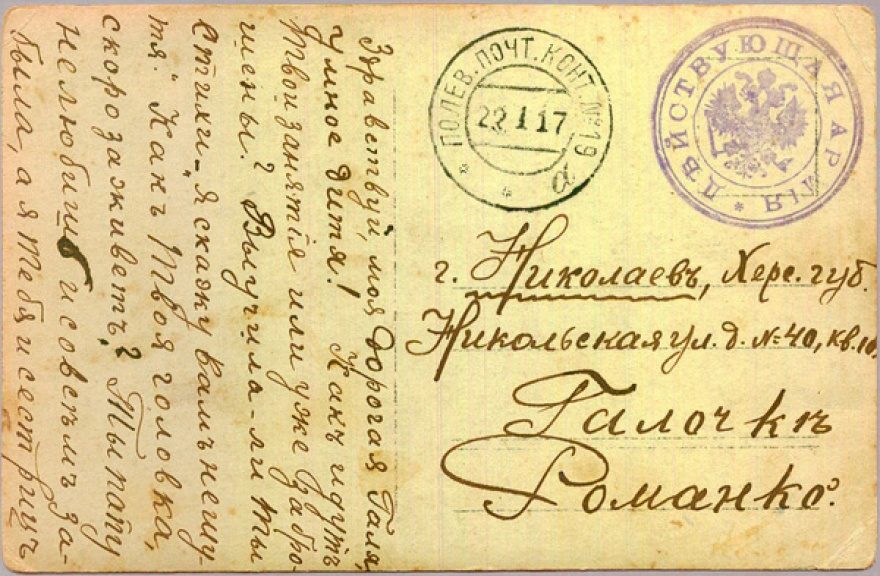 Здравствуй, моя дорогая Галя,
умное дитя! Какъ идутъ
твои занятія или уже забро-
шены? Выучила-ли ты
стихи „Я скажу вамъ не шу-
тя“. Какъ твоя головка,
скоро заживетъ? Ты папу
не любишь и совсѣмъ за-
была, а я тебя и сестрицъ
ПОЛЕВ. ПОЧТ. КОНТ. №19
22 1 17
а
ДѢЙСТВУЮЩАЯ АРМІЯ
г. Николаевъ, Херс. губ.
Никольская ул. д. №40, кв. 10
Галочкѣ
Романко.